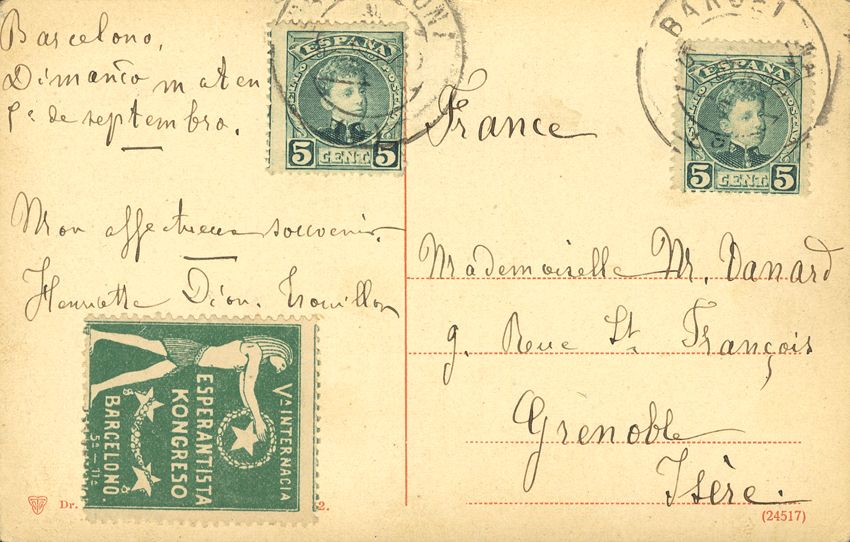 Barcelono,
Dimanĉo maten
5ª de septembro.
Mon affectueux souvenir.
Henriette Dion. Trouillon
ESPAÑA
5 CENT. 5
France
BARCELONA
ESPAÑA
5 CENT. 5
Mademoiselle M. Vanard
9. Rue St François
Grenoble
Isère.
Vª INTERNACIA
ESPERANTISTA
KONGRESO
BARCELONO.
Dr.
2.
(24517)